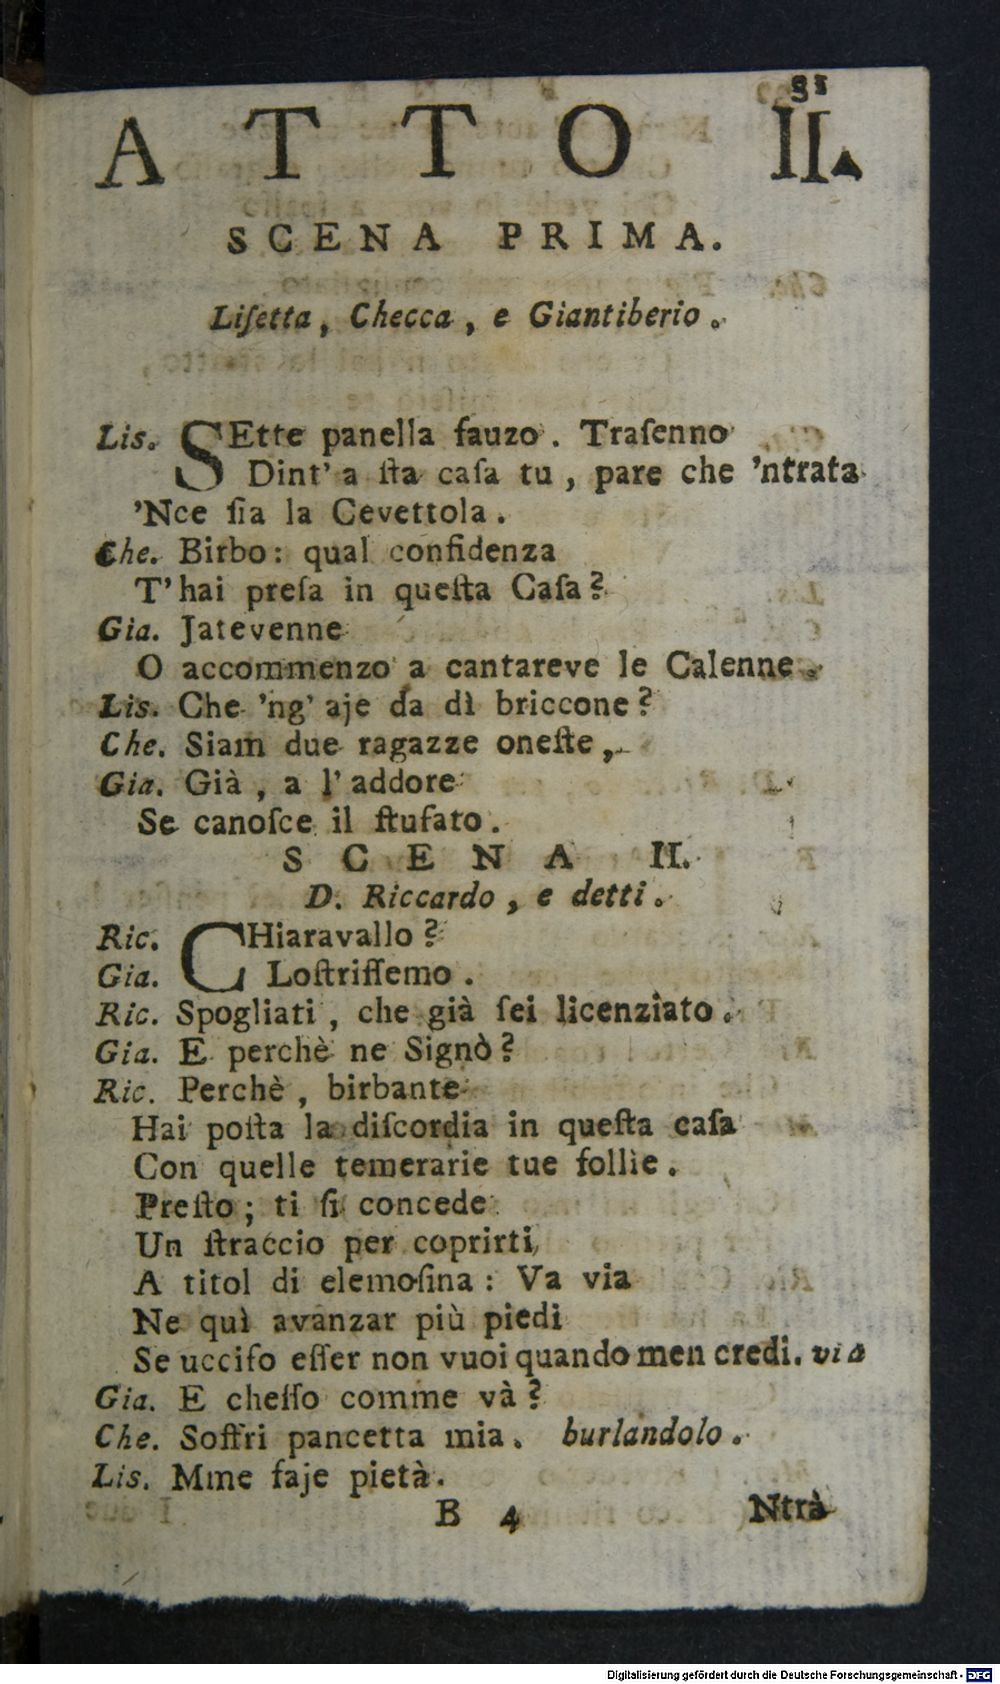 33
ATTO II.
SCENA PRIMA.
Liſetta, Checca, e Giantiberio.
Lis. SEtte panella fauzo. Traſenno
Dint' a ſta caſa tu, pare che 'ntrata
'Nce ſia la Cevettola.
Che. Birbo: qual confidenza
T'hai preſa in queſta Caſa?
Gia. Jatevenne
O accommenzo a cantareve le Calenne.
Lis. Che 'ng' aje da dì briccone?
Che. Siam due ragazze oneſte,
Gia. Già, a l'addore
Se canoſce il ſtufato.
SCENA II.
D. Riccardo, e detti.
Ric. CHiaravallo?
Gia. Loſtriſſemo.
Ric. Spogliati, che già ſei licenziato.
Gia. E perchè ne Signò?
Ric. Perchè, birbante
Hai poſta la diſcordia in queſta caſa
Con quelle temerarie tue follìe.
Preſto; ti ſi concede
Un ſtraccio per coprirti,
A titol di elemoſina: Va via
Ne quì avanzar più piedi
Se ucciſo eſſer non vuoi quando men credi. via
Gia. E cheſſo comme và?
Che. Soffri pancetta mia. burlandolo.
Lis. Mme faje pietà.
B 4 Ntrà
Digitalisierung gefördert durch die Deutsche Forschungsgemeinschaft - DFG